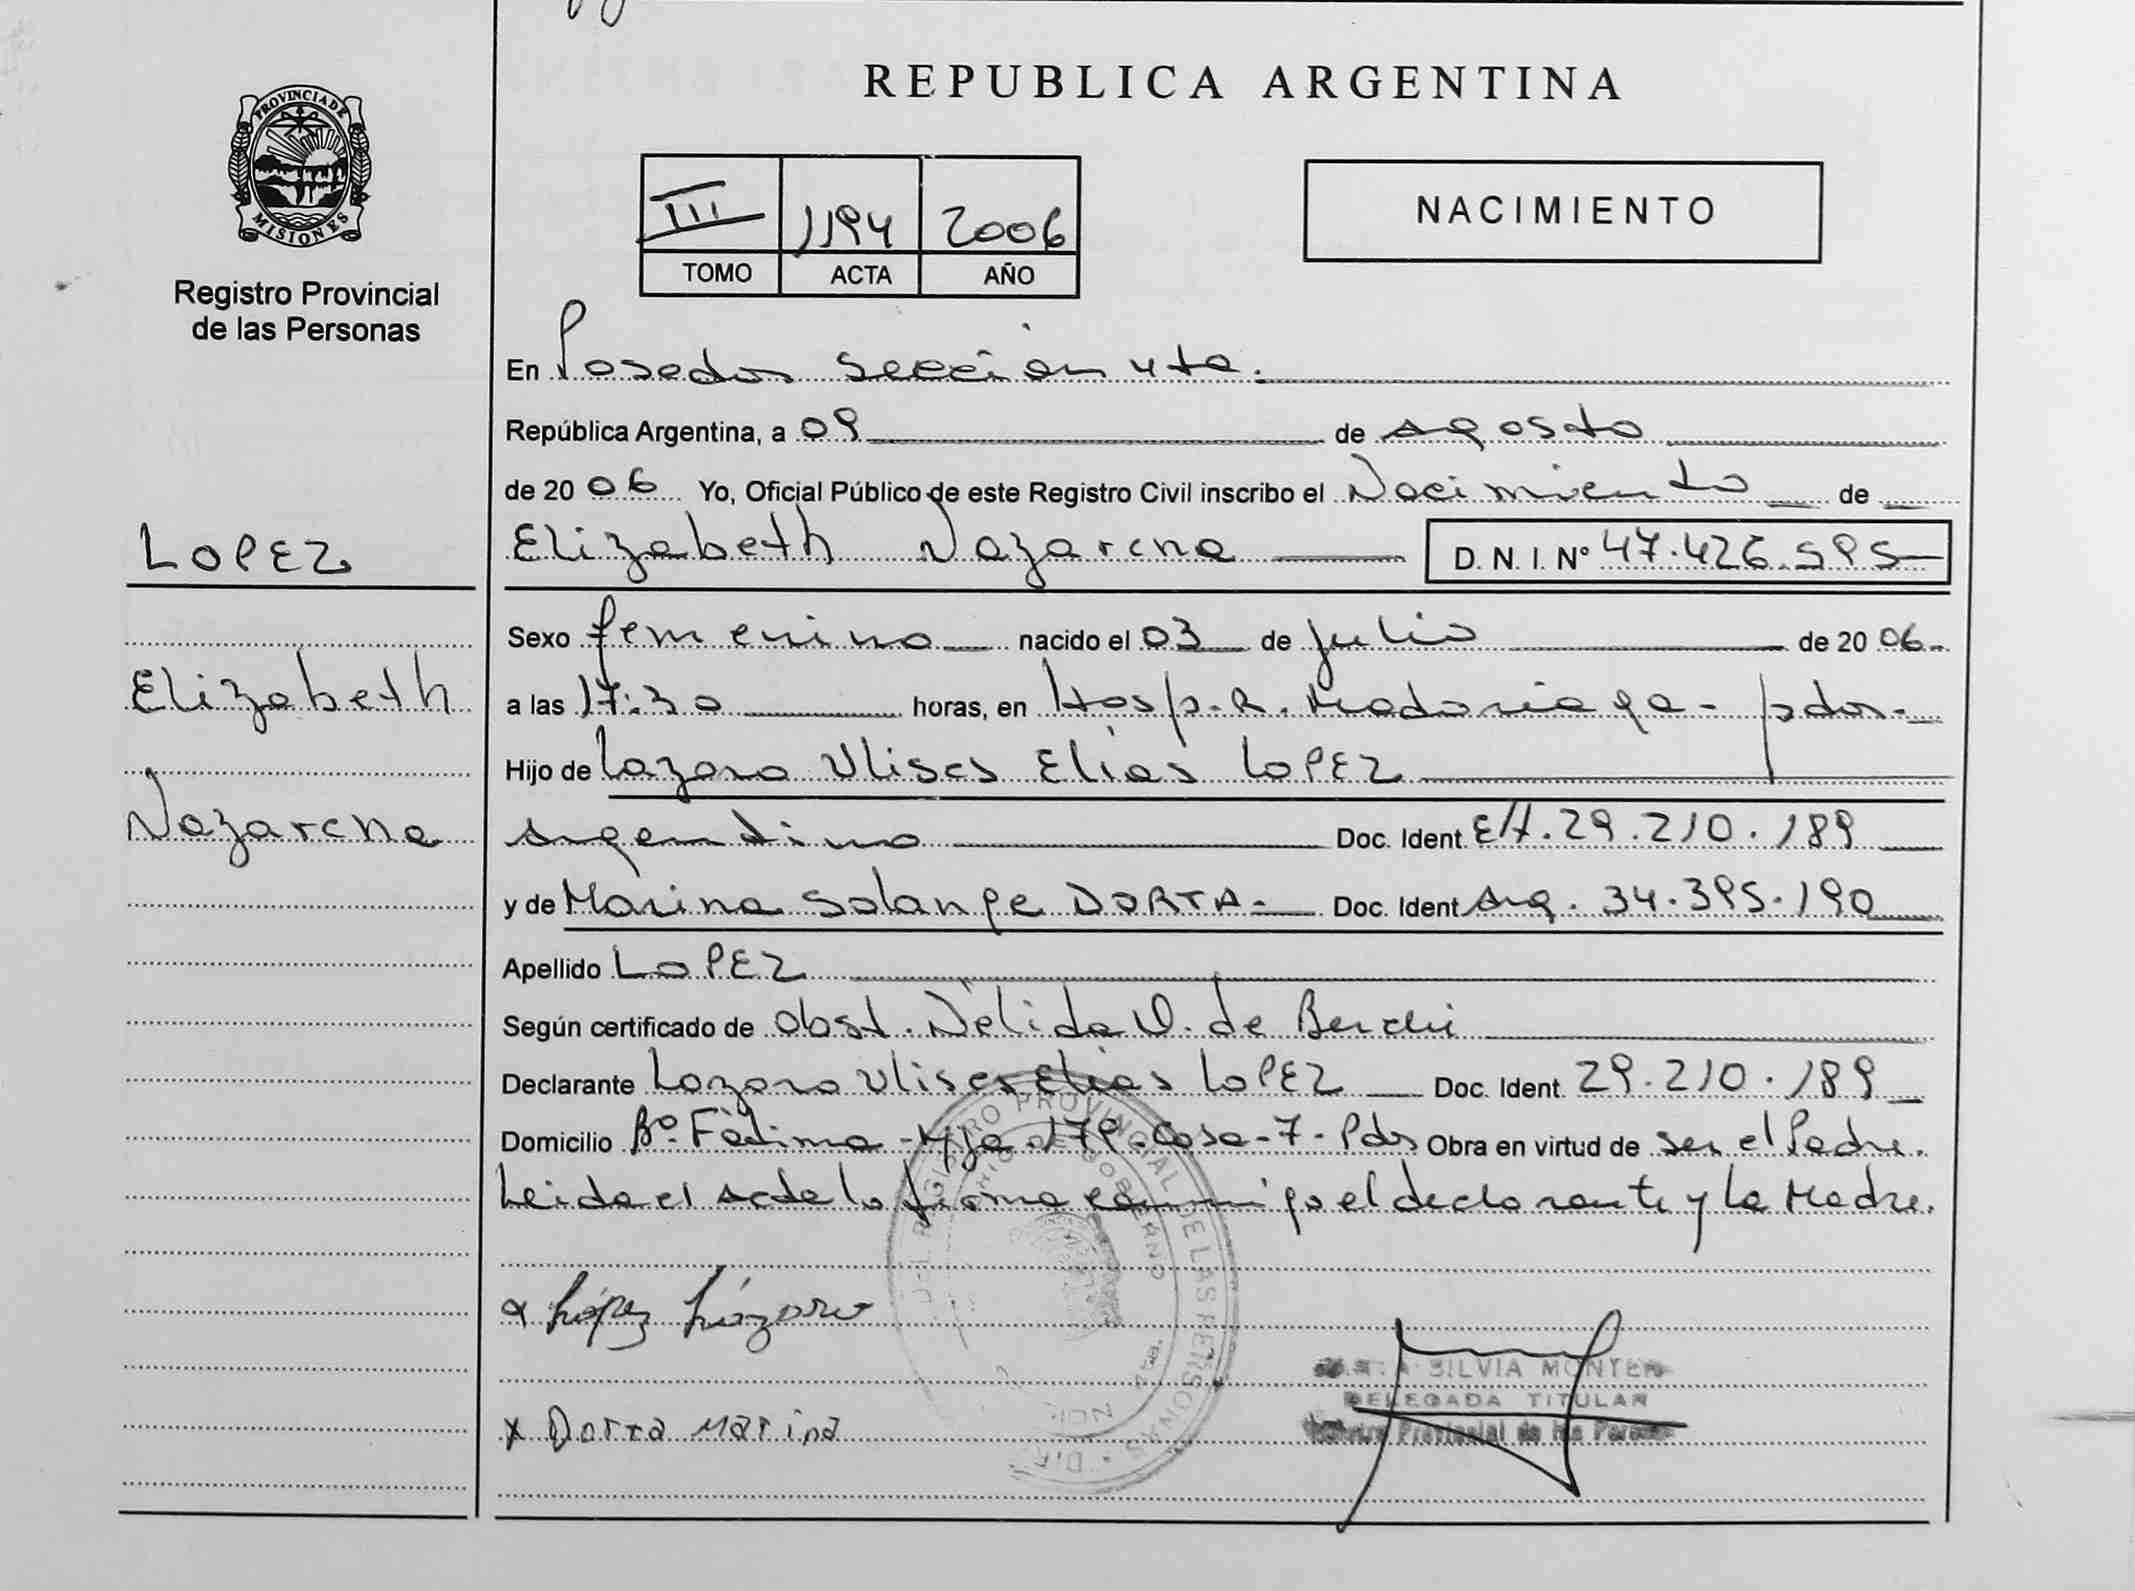 REPUBLICA ARGENTINA
PROVINCIA DE
MISIONES
Registro Provincial
de las Personas
III 1194 2006
TOMO ACTA AÑO
NACIMIENTO
En Posadas sección 4ta.
República Argentina, a 09 de Agosto
de 20 06 Yo, Oficial Público de este Registro Civil inscribo el Nacimiento de
LOPEZ
Elizabeth Nazarena D. N. I. Nº 47.426.595
Sexo femenino nacido el 03 de julio de 20 06
Elizabeth
a las 17:30 horas, en Hosp. R. Madariaga - pdas.
Hijo de Lazaro Ulises Elias LOPEZ
Nazarena
Argentino Doc. Ident. 29.210.189
y de Marina Solange DORTA - Doc. Ident Arg. 34.395.190
Apellido LOPEZ
Según certificado de obst. Nélida de
Declarante Lazaro Ulises Elias LOPEZ Doc. Ident. 29.210.189
Domicilio Bº Fátima - 179 - Casa - 7 - Pdas Obra en virtud de ser el Padre.
Leida el Acta la firma conmigo el declarante y la Madre.
López Lázaro
SILVIA
DELEGADA TITULAR
Provincial de las
x Dorta Marina
REGISTRO PROVINCIAL DE LAS PERSONAS
DE GOBIERNO